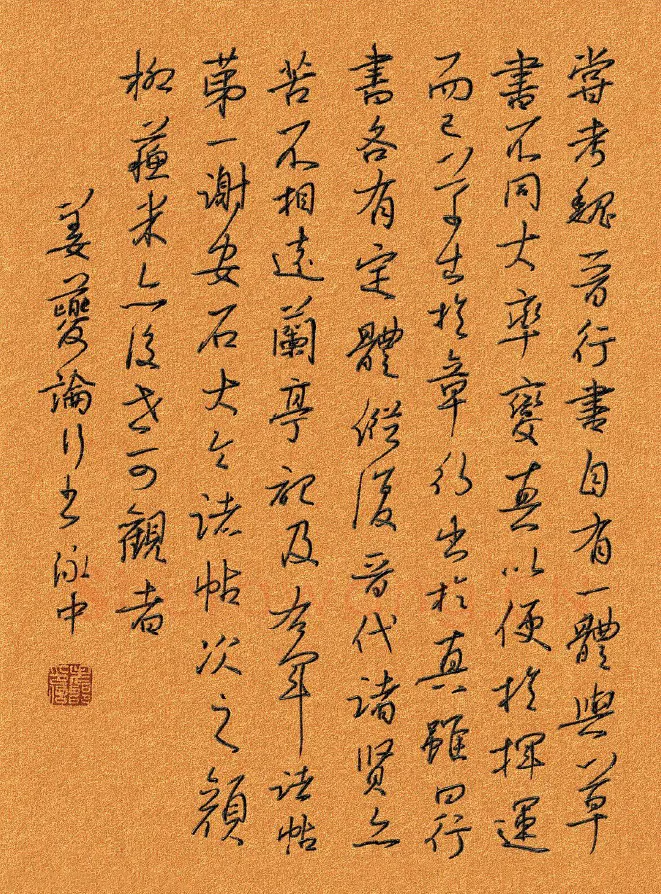 嘗考魏晋行書自有一體與草
書不同大率變真以便於揮運
而已草出於章行出於真雖曰行
書各有定體縱復晋代諸贤亦
苦不相遠蘭亭記及右军诸帖
第一謝安石大令诸帖次之顔
柳蘇米亦後世可觀者
姜夔論行书 泳中